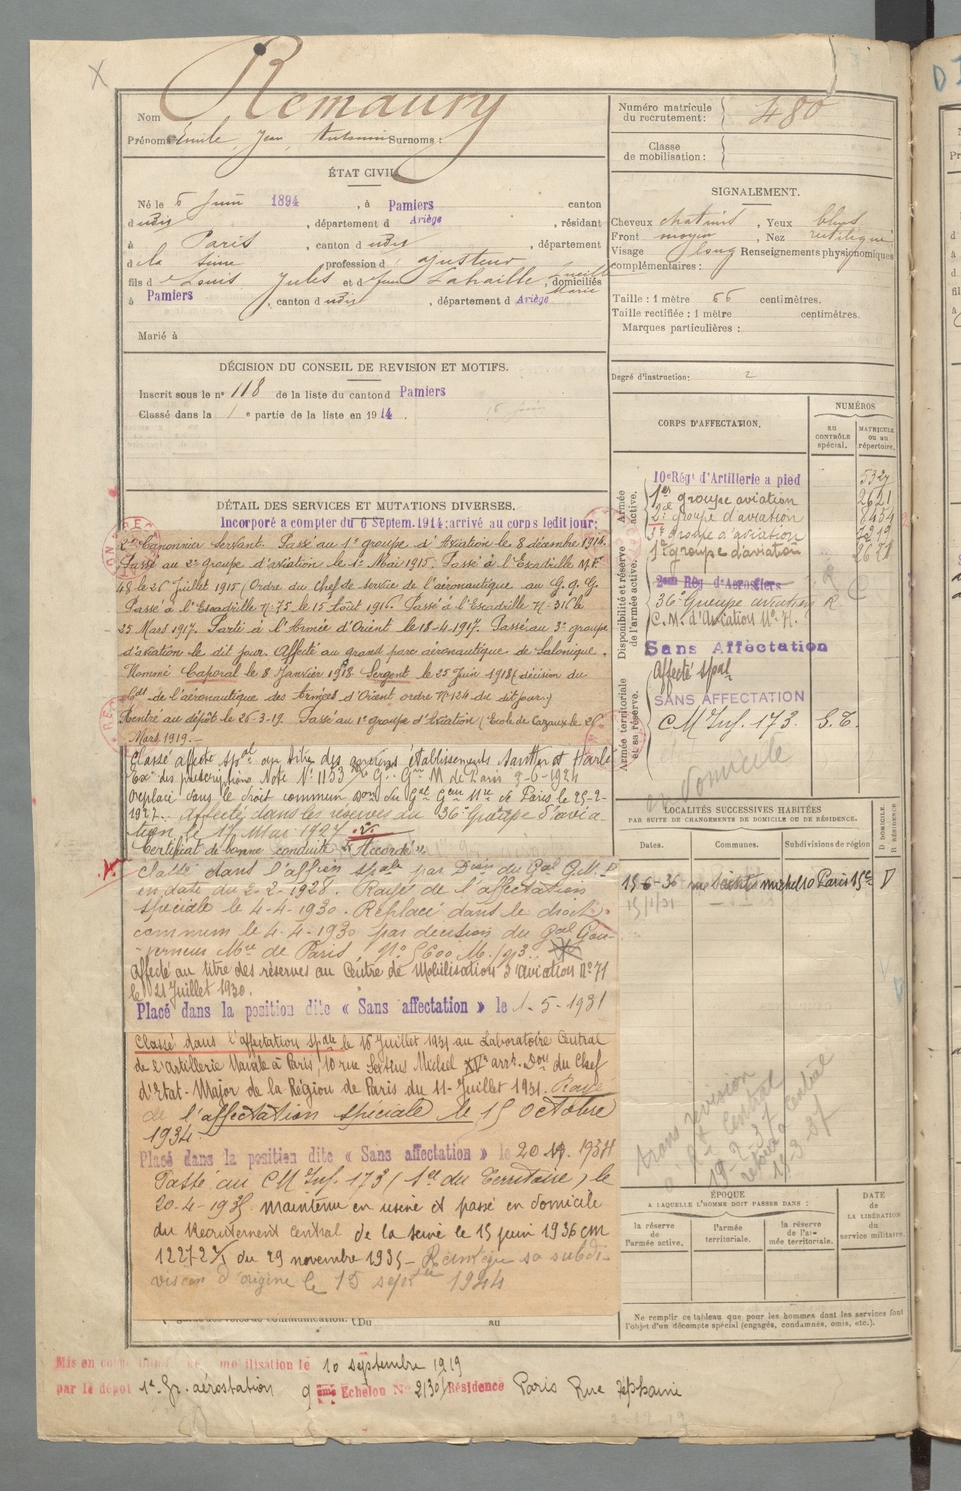 Nom Remaury
Prénoms Emile, Jean, Antonin Surnoms :
ÉTAT CIVIL
Né le 6 Juin 1894, à Pamiers canton
d udis, département d Ariège, résidant
à Paris, canton d udis, département
d la Seine profession d'ajusteur
fils d e Louis Jules et d Lahaille Lucille Marie, domiciliés
à Pamiers, canton d udis, département d Ariège
Marié à
DÉCISION DU CONSEIL DE REVISION ET MOTIFS.
Inscrit sous le n° 118 de la liste du canton d Pamiers
Classé dans la 1e partie de la liste en 1914.
DÉTAIL DES SERVICES ET MUTATIONS DIVERSES.
Incorporé a compter du 6 Septem. 1914; arrivé au corps ledit jour;
2e Canonnier servant. Passé au 1e groupe d'Aviation le 8 décembre 1914.
Passé au 2e groupe d'aviation le 1e Mai 1915. Passé à l'Escadrille M.F.
48 le 26 Juillet 1915 (Ordre du Chef de service de l'aéronautique au G.Q.G.
Passé à l'Escadrille N. 75 le 15 Août 1916. Passé à l'Escadrille N. 316 le
25 Mars 1917. Parti à l'Armée d'Orient le 18-4-1917. Passé au 3e groupe
d'aviation le dit jour. Affecté au grand parc aéronautique de Salonique.
Nommé Caporal le 8 Janvier 1918 Sergent le 25 Juin 1918 (décision du
Cdt de l'aéronautique des Armées d'Orient ordre N° 124 du dit jour.)
Rentré au dépôt le 26-3-19. Passé au 1e groupe d'Aviation (Ecole de Cazaux le 26
Mars 1919.-
Classé affecté spal au titre des anciens établissements Sautter et Harlé
Exon des prescriptions Note N° 1153 Gal Gur M. de Paris 2-6-1924
Replacé dans le droit commun Don du Gal Gou Mre de Paris le 25-2-
1927. Affecté dans les réserves du 36e Groupe d'avia-
tion le 17 Mai 1927
Certificat de bonne conduite "Accordé"
Classé dans l'affon spale par Dion du Gal G.M.P
en date du 2-2-1928. Rayé de l'affectation
spéciale le 4-4-1930. Replacé dans le droit
commun le 4-4-1930 par décision du Gal Gou-
verneur Mre de Paris, N° 5600 M./913
Affecté au titre des réserves au Centre de Mobilisation d'aviation N° 71
le 21 Juillet 1930.
Placé dans la position dite « Sans affectation » le 1-5-1931
Classé dans l'affectation spale le 16 Juillet 1931 au Laboratoire Central
de l'Artillerie Navale à Paris, 10 rue Sextius Michel XVe arrt. Don du Chef
d'Etat-Major de la Région de Paris du 11-Juillet 1931. Rayé
de l'affectation spéciale le 15 octobre
1934
Placé dans la position dite « Sans affectation » le 20
Passé au C M Inf. 173 (1er du Territoire) le
20-4-1935. maintenu en usine et passé en domicile
du Recrutement Central de la Seine le 15 juin 1936 cm
122727 du 29 novembre 1935 - Réintègre sa subdi-
vision d'origine le 15 septbre 1944
(Du au
Mis en mobilisation le 10 septembre 1919
par le dépôt 1e Gr. aérostation 9 ème Echelon N° 2130 Résidence Paris Rue
Numéro matricule du recrutement : 480
Classe de mobilisation :
SIGNALEMENT.
Cheveux chatains, Yeux bleus
Front moyen, Nez rectiligne
Visage long Renseignements physionomiques
complémentaires :
Taille : 1 mètre 66 centimètres.
Taille rectifiée : 1 mètre centimètres.
Marques particulières :
Degré d'instruction : 2
CORPS D'AFFECTATION.
NUMÉROS
AU CONTRÔLE spécial.
MATRICULE ou au répertoire.
Armée active.
Disponibilité et réserve de l'armée active.
Armée territoriale et sa réserve.
10e Régt d'Artillerie a pied
1er groupe aviation 2621
2e groupe d'aviation 8454
3e groupe d'aviation
1e groupe d'aviation 2621
2eme Rég d'Aerostiers
36e Groupe aviation R
C.M. d'Aviation N° 71.
Sans Affectation
Affecté spal
SANS AFFECTATION
C M Inf. 173. S.T.
en domicile
LOCALITÉS SUCCESSIVES HABITÉES
PAR SUITE DE CHANGEMENTS DE DOMICILE OU DE RÉSIDENCE.
Dates.
Communes.
Subdivisions de région
D DOMICILE R RÉSIDENCE
15-6-36 rue Sextius michel 10 Paris 15e D
trans revision
Rt Central
19-2-37
retour à Central
18-3-37
ÉPOQUE
A LAQUELLE L'HOMME DOIT PASSER DANS :
la réserve de l'armée active.
l'armée territoriale.
la réserve de l'armée territoriale.
DATE de LA LIBÉRATION du service militaire.
Ne remplir ce tableau que pour les hommes dont les services font
l'objet d'un décompte spécial (engagés, condamnés, omis, etc.).